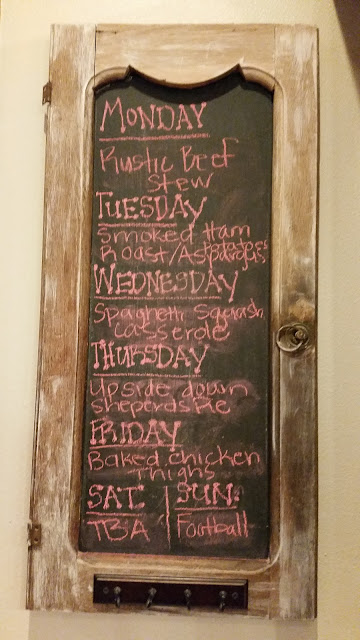 MONDAY
Rustic Beef
Stew
TUESDAY
Smoked Ham
potatoes
Roast/Asparagus
WEDNESDAY
Spaghetti Squash
casserole
THURSDAY
Upside down
sheperds Pie
FRIDAY
Baked chicken
Thighs
SAT. SUN.
TBA Football